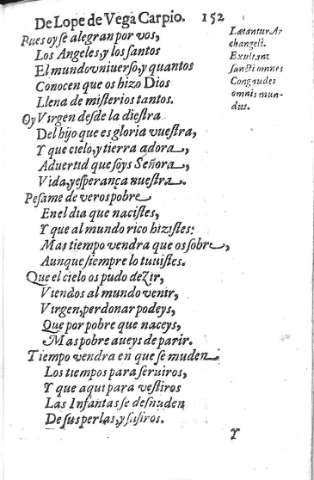 De Lope de Vega Carpio. 152
Pues oy se alegran por vos,
Los Angeles, y los santos
El mundo vniuerso, y quantos
Conocen que os hizo Dios
Llena de misterios tantos.
Oy Virgen desde la diestra
Del hijo que es gloria vuestra,
Y que cielo, y tierra adora,
Aduertid que soys Señora,
Vida, y esperança nuestra.
Pesame de veros pobre
En el dia que nacistes,
Y que al mundo rico hizistes:
Mas tiempo vendra que os sobre,
Aunque siempre lo tuuistes.
Que el cielo os pudo dezir,
Viendos al mundo venir,
Virgen, perdonar podeys,
Que por pobre que naceys,
Mas pobre aueys de parir.
Tiempo vendra en que se muden
Los tiempos para seruiros,
Y que aqui para vestiros
Las Infantas se desnuden
De sus perlas, y safiros.
Y
Lætantur Ar
changeli.
Exultant
sancti omnes
Congaudes
omnis mun-
dus.